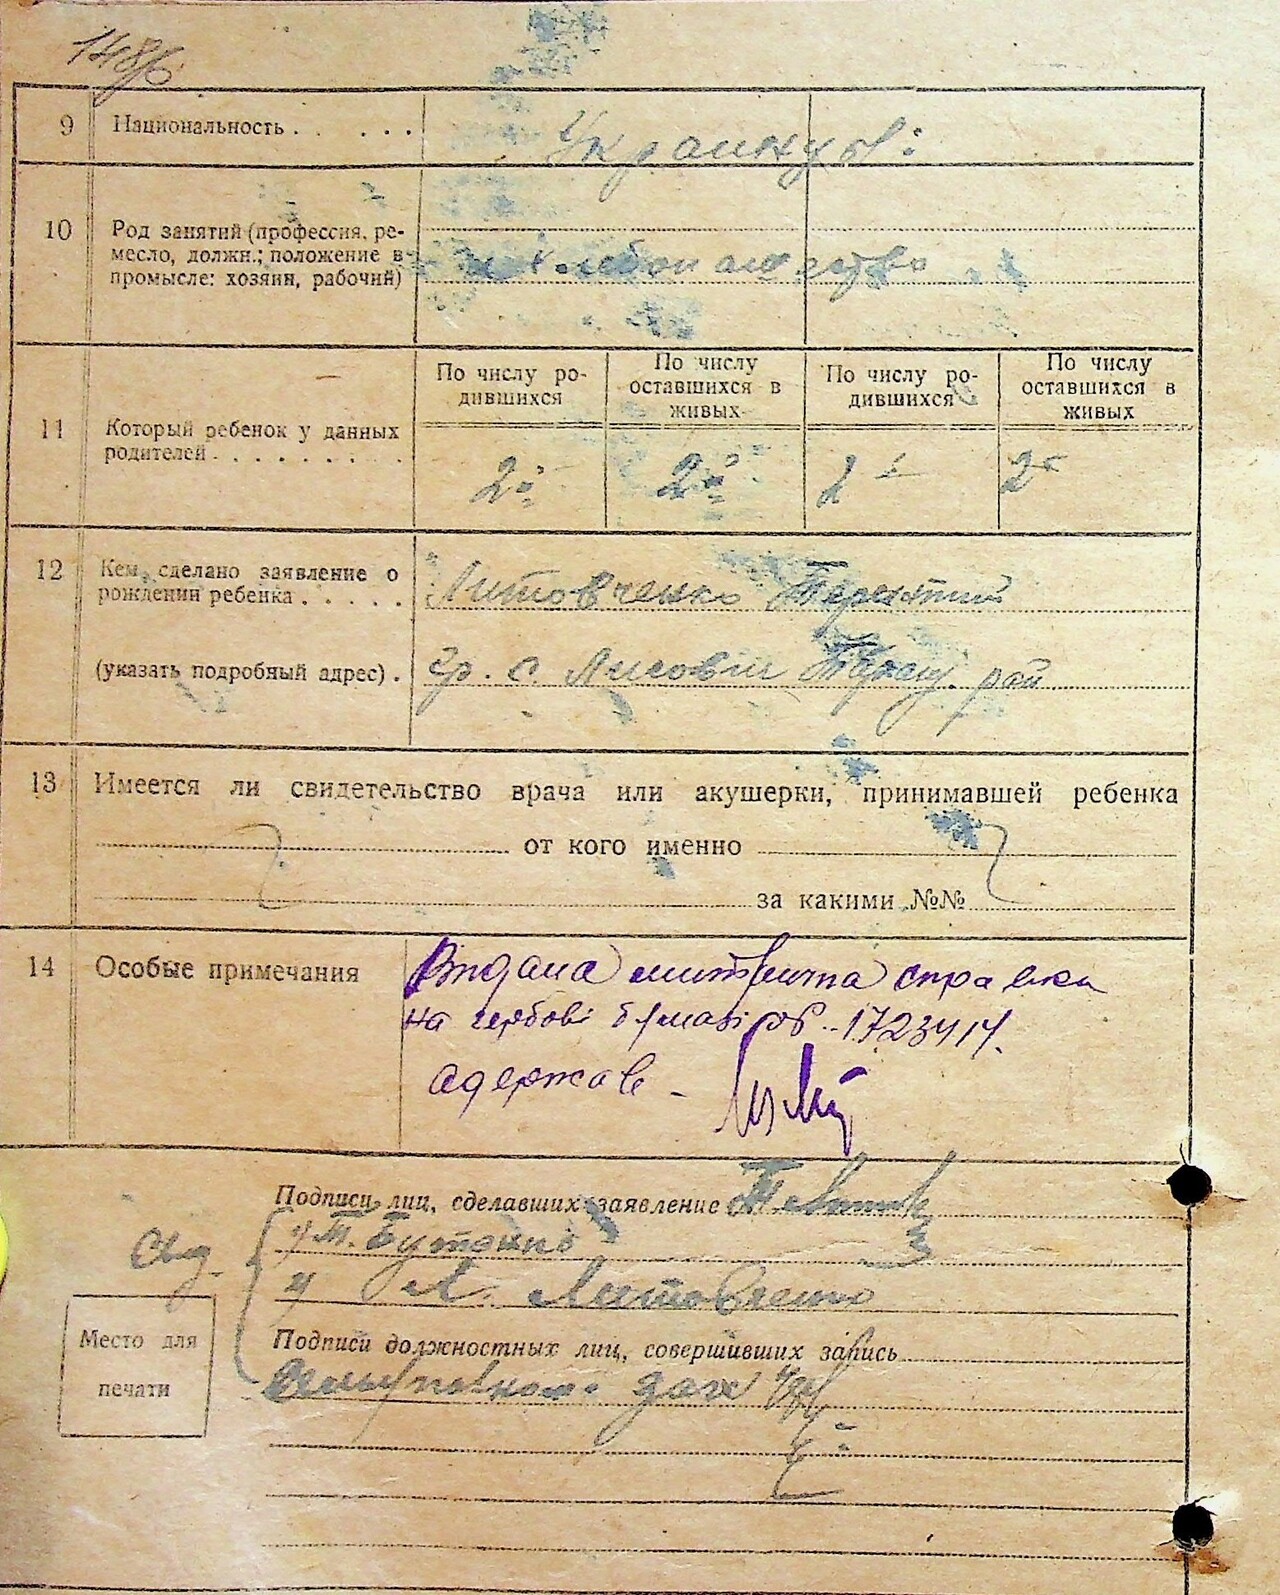 148б
9 Национальность . . . . . . Украинцы:
10 Род занятий (профессия, ре-
месло, должн.; положение в
промысле: хозяин, рабочий)
хлебопашество
По числу ро-
дившихся
По числу
оставшихся в
живых
По числу ро-
дившихся
По числу
оставшихся в
живых
11 Который ребенок у данных
родителей . . . . . . . .
2й 2й 2 2
12 Кем сделано заявление о
рождении ребенка . . . . . Литовченко Терентий
(указать подробный адрес) . гр. с. Лисович Таращ. рай
13 Имеется ли свидетельство врача или акушерки, принимавшей ребенка
от кого именно
за какими №№
14 Особые примечания
Видана метрична справка
на гербові бумазі 1723414.
адержав -
Подписи лиц, сделавших заявление
Свид. 1) Т. Бутенко
2) Л. Литовченко
Подписи должностных лиц, совершивших запись
Место для
печати